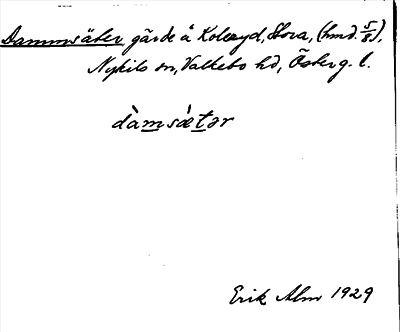 Dammsäter gärde å Koleryd, Stora, (hmd. 5/8),
Nykils sn, Valkebo hd, Österg. l.
dàmsæ̀tər
Erik Alm 1929